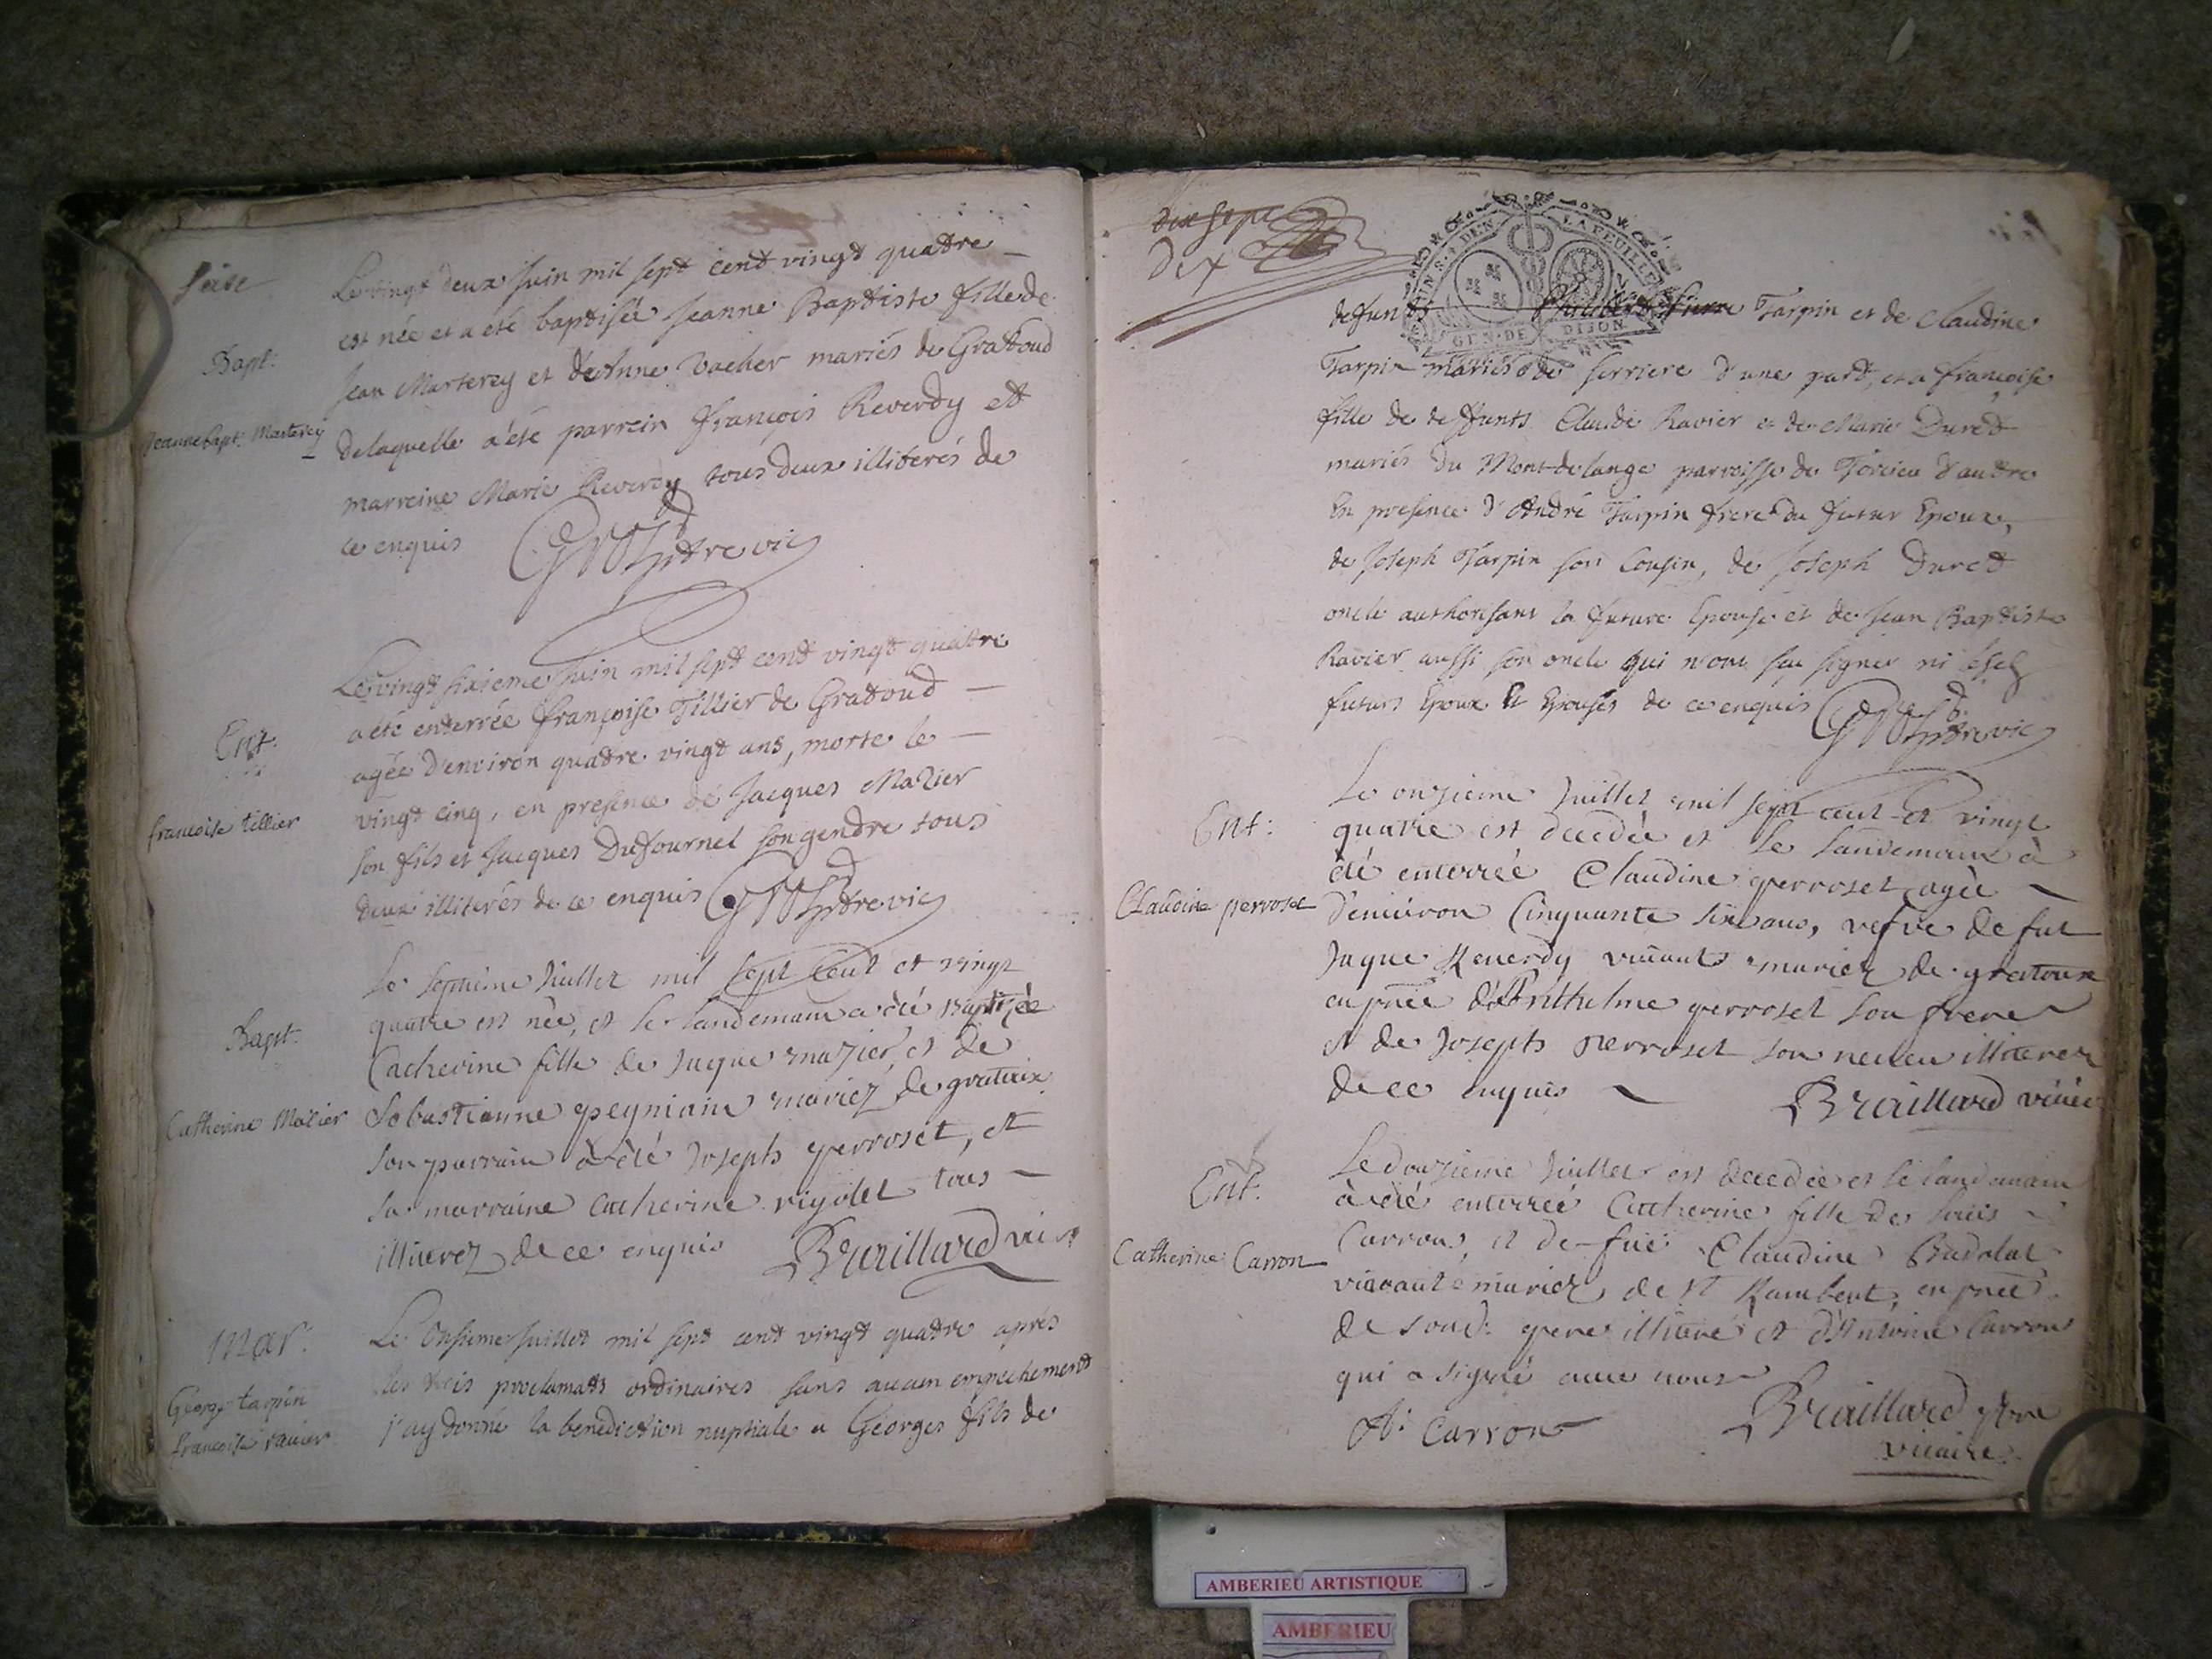 seise
Bapt:
Jeanne bapt. Marterey
Le vingt deux Juin mil sept cent vingt quattre
est née et a eté baptisée Jeanne Baptiste fille de
Jean Marterey et de Anne Vacher mariés de Grattoud
de laquelle a été parrein François Reverdy et
marreine Marie Reverdy tous deux illiterés de
ce enquis
Ent.
francoise tillier
Le vingt sixieme Juin mil sept cent vingt quattre
a eté enterrée françoise Tillier de Grattoud
agée d'environ quattre vingt ans, morte le
vingt cinq, en presence de Jacques Mazier
son fils et Jacques Dufournel son gendre tous
deux illiterés de ce enquis
Bapt.
Catherine Mazier
Le septieme Juillet mil sept cent et vingt
quatre est née, et le landemain a èté baptizée
Catherine fille de Jaque mazier, et de
Sebastianne pegniain mariez de gratoux
son parrain à èté Josepts perroset, et
sa marraine catherine rigolet tous
illiterez de ce enquis Braillard vic
Mar.
George tarpin
francoise ravier
Le Onsieme Juillet mil sept cent vingt quattre après
les trois proclamats ordinaires sans aucun empechement
j'ay donné la benediction nuptiale a Georges fils de
dix sept
Dix
GEN. DE DIJON
LA FEUILLE
defunts Philibert Pierre Tarpin et de Claudine
Tarpin mariés de serriere d'une part, et a françoise
fille de deffunts Claude Ravier et de Marie Duret
mariés du Mont-de lange parroisse de Torcieu d'autre
En presence d'André Tarpin frere du futur Epoux,
de Joseph Tarpin son Cousin, de Joseph Duret
oncle authorisant la future Epouse et de Jean Baptiste
Ravier aussi son oncle qui n'ont sçu signer ni lesd
futurs Epoux et Epouses de ce enquis
Ent:
Claudine perroset
Le onzieme Juillet mil sept cent et vingt
quatre est decedée et le landemain à
èté enterrée Claudine perroset agée
d'environ Cinquante six ans, vefve de fut
Jaque Reverdy vivants mariez de gratoux
en pñce d'Anthelme perroset son frere
et de Josepts perroset son neveu illiterez
de ce enquis Braillard vicaire
Ent.
Catherine Carron
Le douzieme Juillet est decedée et le landemain
à èté enterrée Catherine fille de Louis
Carron, et de fuë Claudine Badolat
vivant mariez de St Rambert, en pñce
de soud. pere illiteré et d'Antoine Carron
qui a signé avec nous
A. Carron Braillard ptre
vicaire
AMBERIEU ARTISTIQUE
AMBERIEU